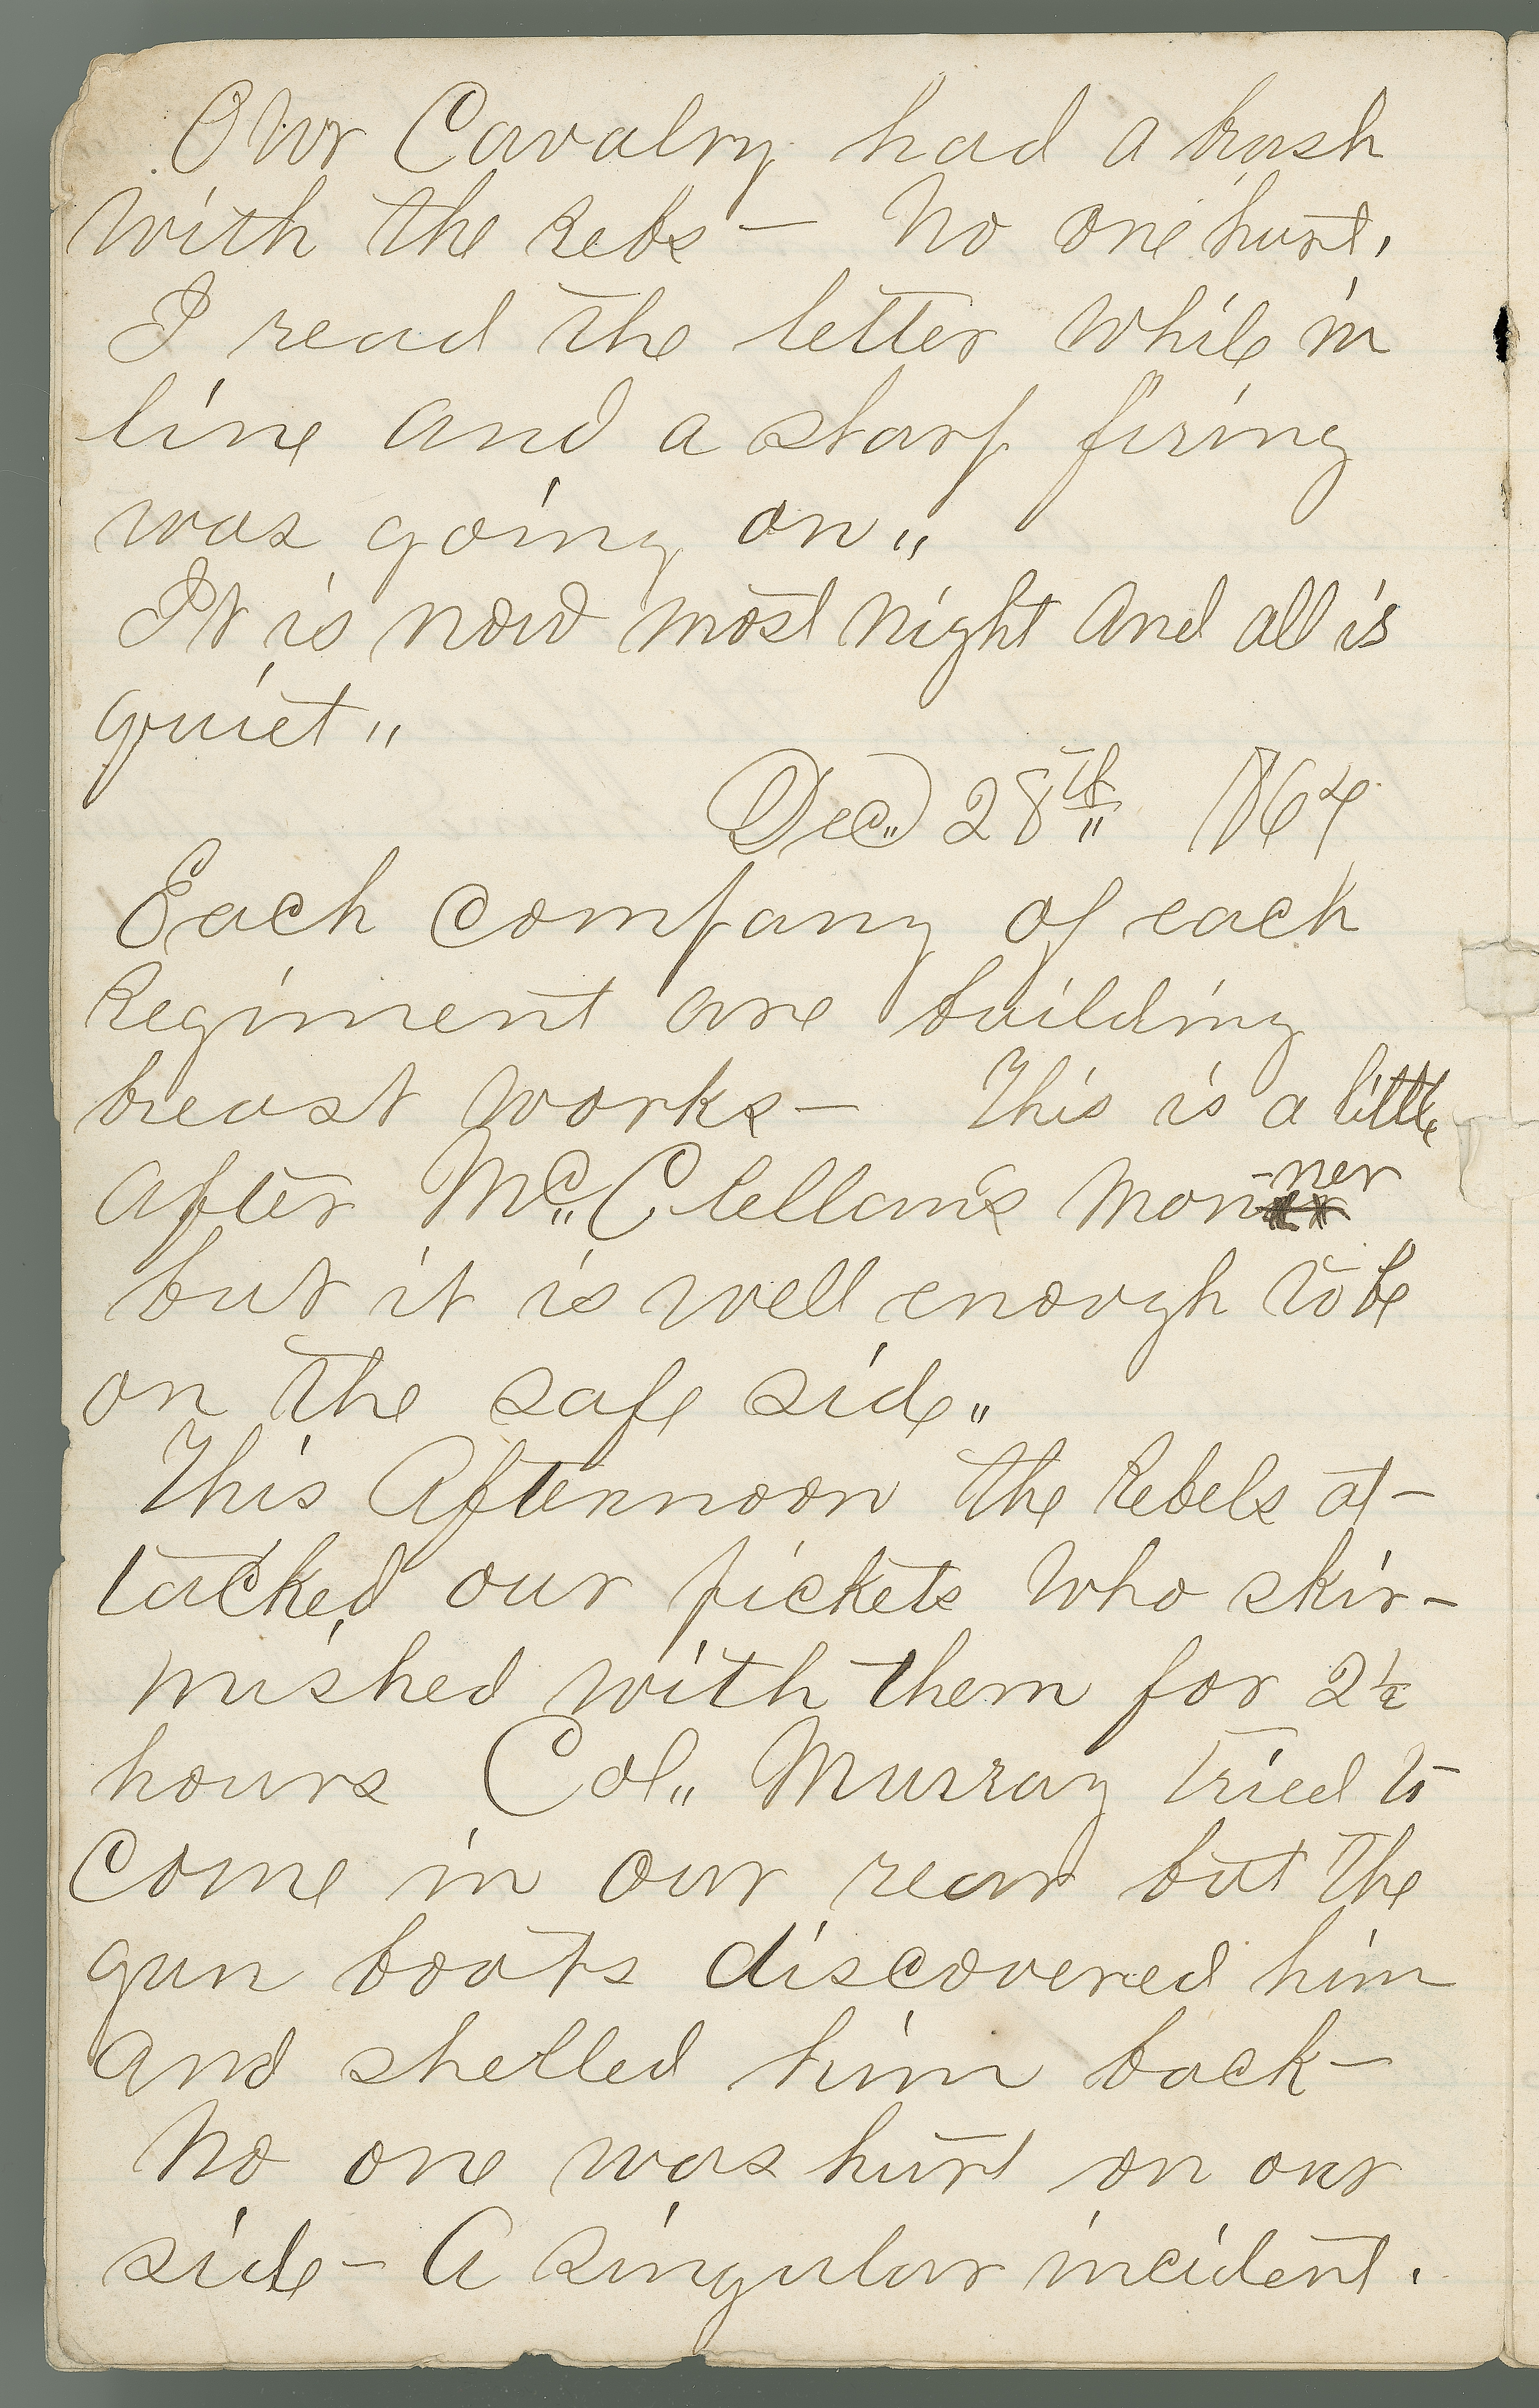 Our Cavalry had a brush
with the Rebs — No one hurt.
I read the letter while in
line and a sharp firing
was going on "
It is now most night and all is
quiet "
Dec" 28th" 1864
Each company of each
Regiment are building
breast works — This is a little
after Mc" Clellan's man-ner
but it is well enough to be
on the safe side"
This Afternoon the Rebels at-
tacked our pickets who skir-
mished with them for 2½
hours Col" Murray tried to
come in our rear but the
gun boats discovered him
and shelled him back —
No one was hurt on our
side — A singular incident.